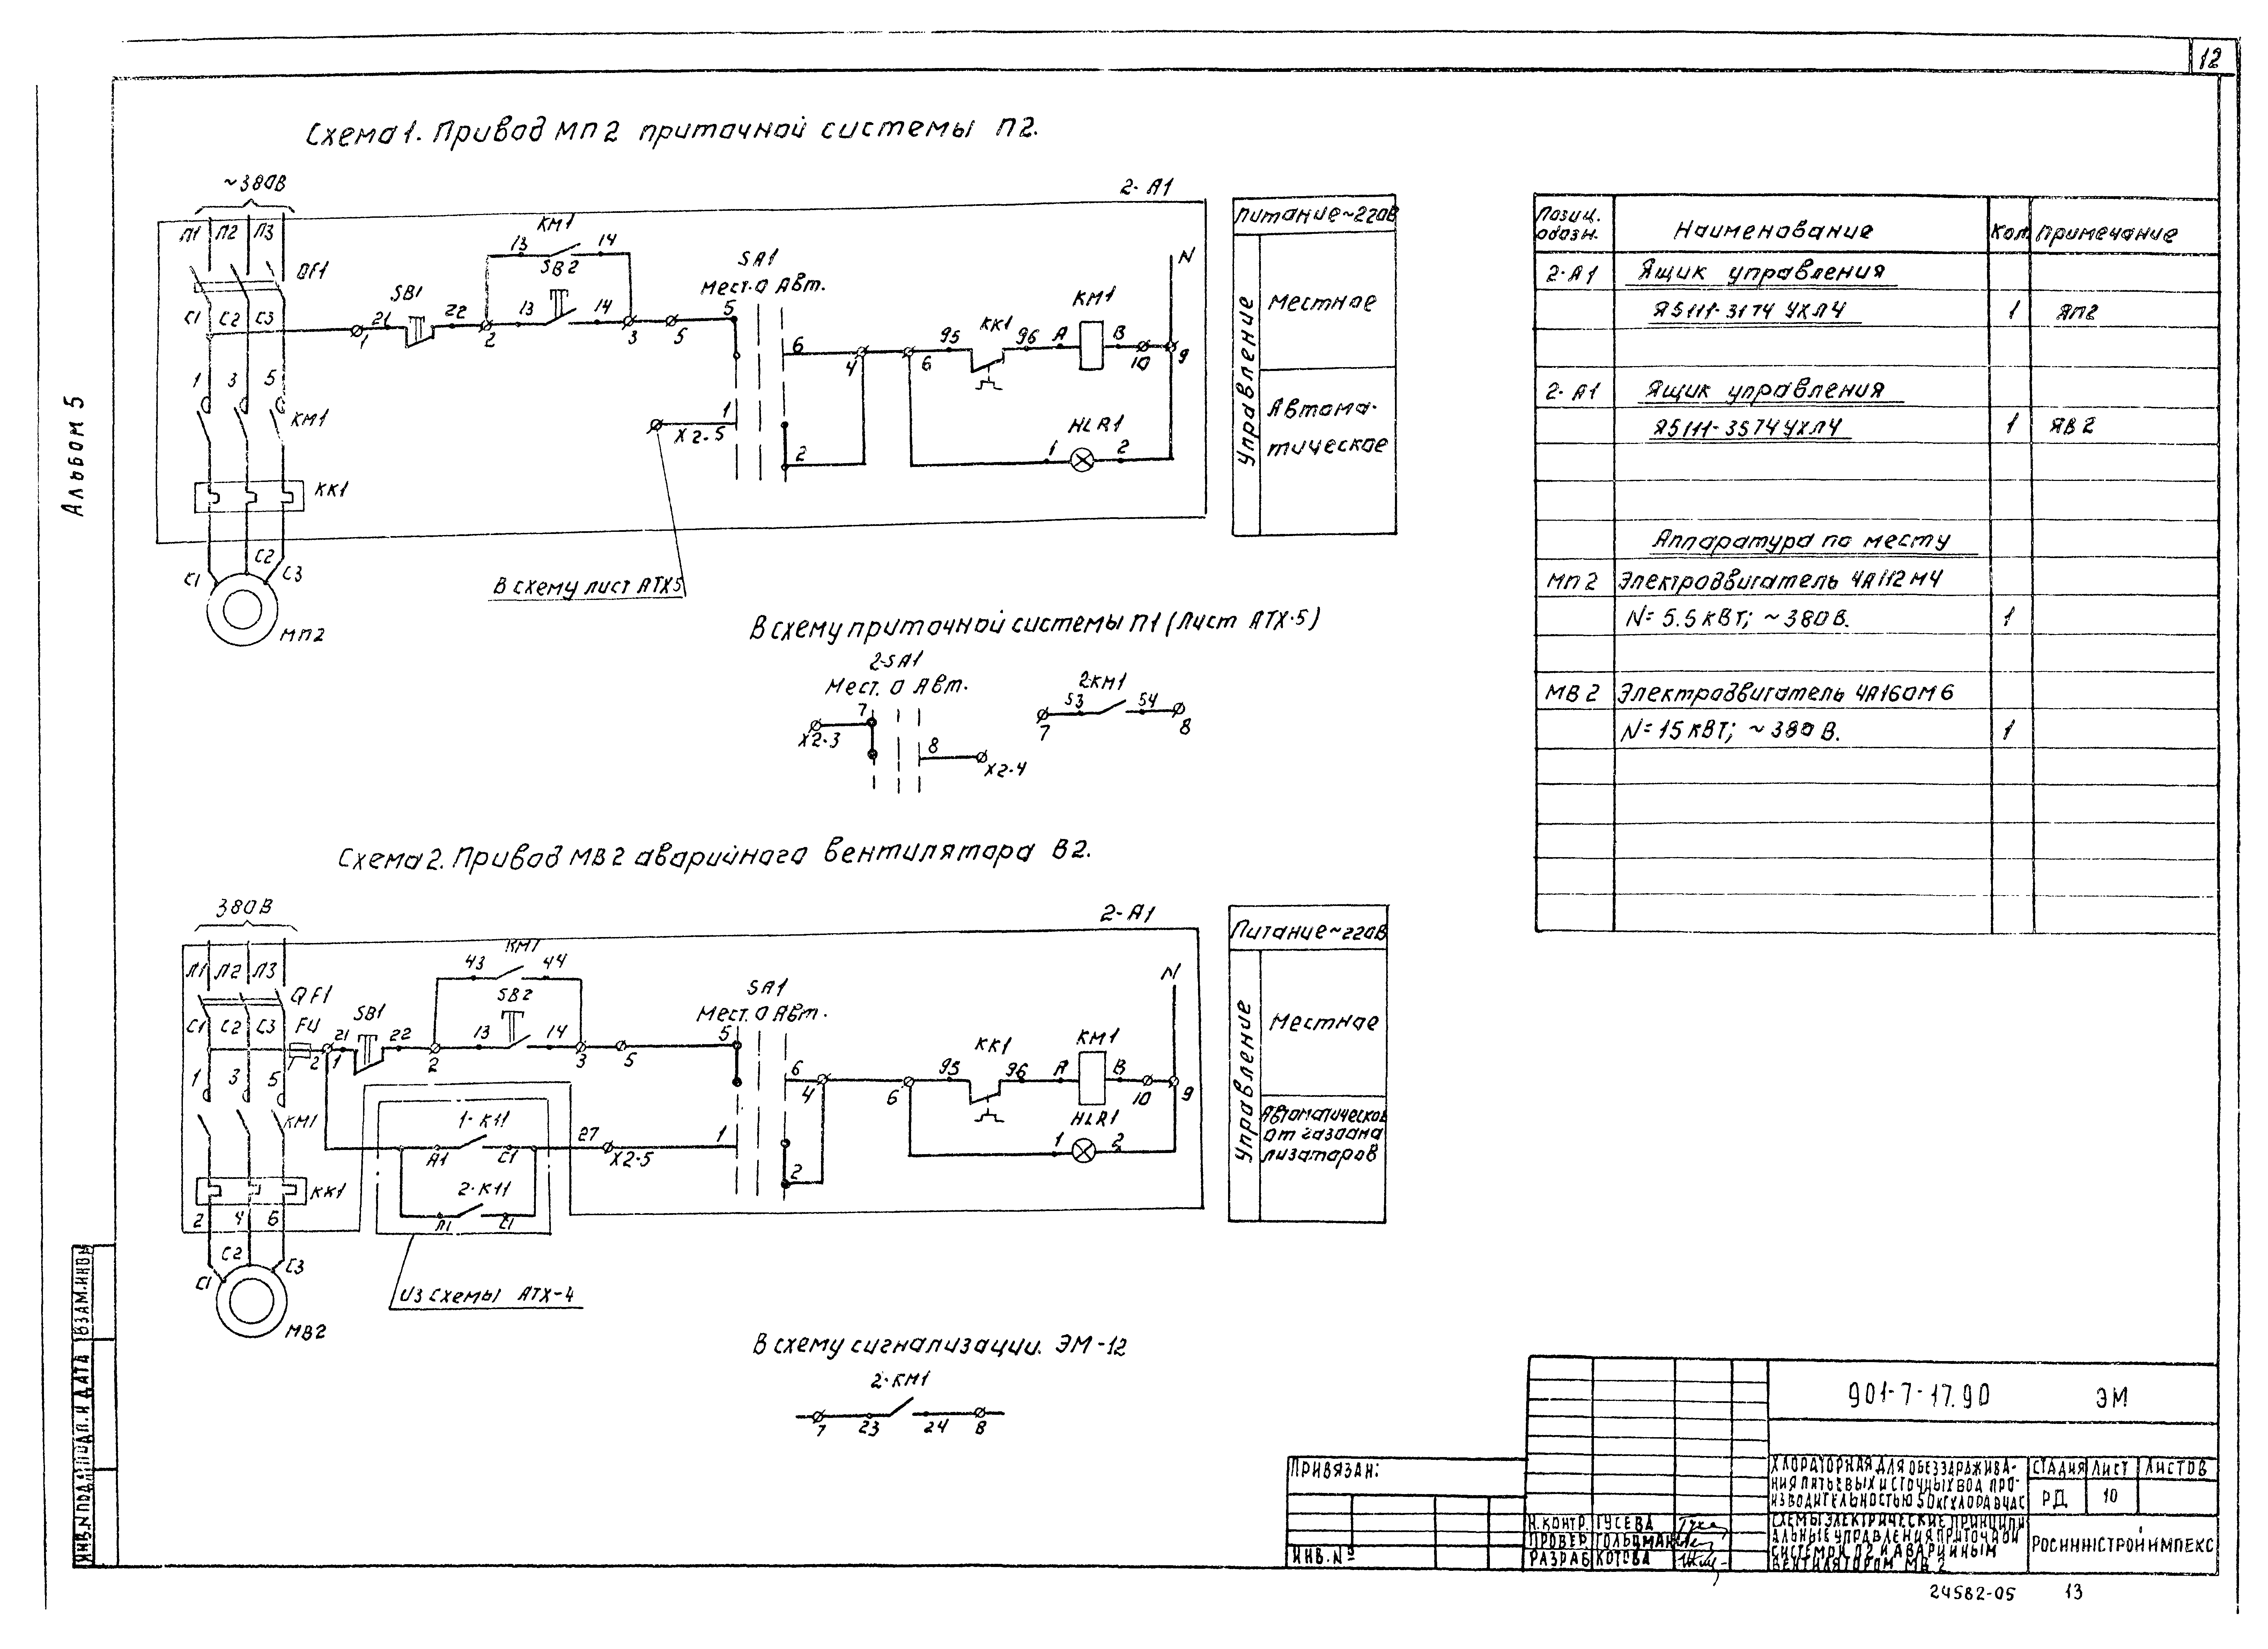 12
Альбом 5
Схема 1. Привод МП2 приточной системы П2.
~380В
2-А1
Л1 Л2 Л3
QF1
С1 С2 С3
1 3 5
КМ1
КК1
С1 С2 С3
МП2
1 21 SB1 22 2
13 КМ1 14
SB2
13 14
3 5
SA1
Мест. 0 Авт.
5
6
4
6
95 КК1 96
А КМ1 В
10
9
N
1
Х2-5
2
HLR1
1 2
В схему лист АТХ5
Питание ~220В
Управление
Местное
Автома-
тическое
В схему приточной системы П1 (Лист АТХ-5)
2-SA1
Мест. 0 Авт.
7
Х2-3
8
Х2-4
2КМ1
53 54
7 8
Схема 2. Привод МВ2 аварийного вентилятора В2.
380В
2-А1
Л1 Л2 Л3
QF1
С1 С2 С3
FU
2
1 3 5
КМ1
КК1
2 4 6
С1 С2 С3
МВ2
1 21 SB1 22 2
КМ1
43 44
SB2
13 14
3 5
SA1
Мест. 0 Авт.
5
6
4
6
95 КК1 96
А КМ1 В
10
9
N
1-К11
А1 С1
27
Х2-5
1
2
2-К11
Л1 С1
HLR1
1 2
Из схемы АТХ-4
Питание ~220В
Управление
Местное
Автоматическое
от газоана
лизаторов
В схему сигнализации. ЭМ-12
2-КМ1
7 23 24 8
Позиц. обозн. Наименование Кол. Примечание
2-А1 Ящик управления
Я5111-3174 УХЛ4 1 ЯП2
2-А1 Ящик управления
Я5111-3574 УХЛ4 1 ЯВ2
Аппаратура по месту
МП2 Электродвигатель 4А112М4
N=5.5 кВт; ~380В. 1
МВ2 Электродвигатель 4А160М6
N=15 кВт; ~380В. 1
901-7-17.90 ЭМ
ХЛОРАТОРНАЯ ДЛЯ ОБЕЗЗАРАЖИВА-
НИЯ ПИТЬЕВЫХ И СТОЧНЫХ ВОД ПРО-
ИЗВОДИТЕЛЬНОСТЬЮ 50 КГ ХЛОРА В ЧАС
СТАДИЯ ЛИСТ ЛИСТОВ
РД 10
СХЕМЫ ЭЛЕКТРИЧЕСКИЕ ПРИНЦИПИ
АЛЬНЫЕ УПРАВЛЕНИЯ ПРИТОЧНОЙ
СИСТЕМОЙ П2 И АВАРИЙНЫМ
ВЕНТИЛЯТОРОМ МВ 2
РОСИНЖСТРОЙИМПЕКС
ПРИВЯЗАН:
ИНВ. №
Н.КОНТР. ГУСЕВА
ПРОВЕР ГОЛЬДМАН
РАЗРАБ КОТОВА
ИНВ.N ПОДЛ ПОДП. И ДАТА ВЗАМ.ИНВ
24582-05 13